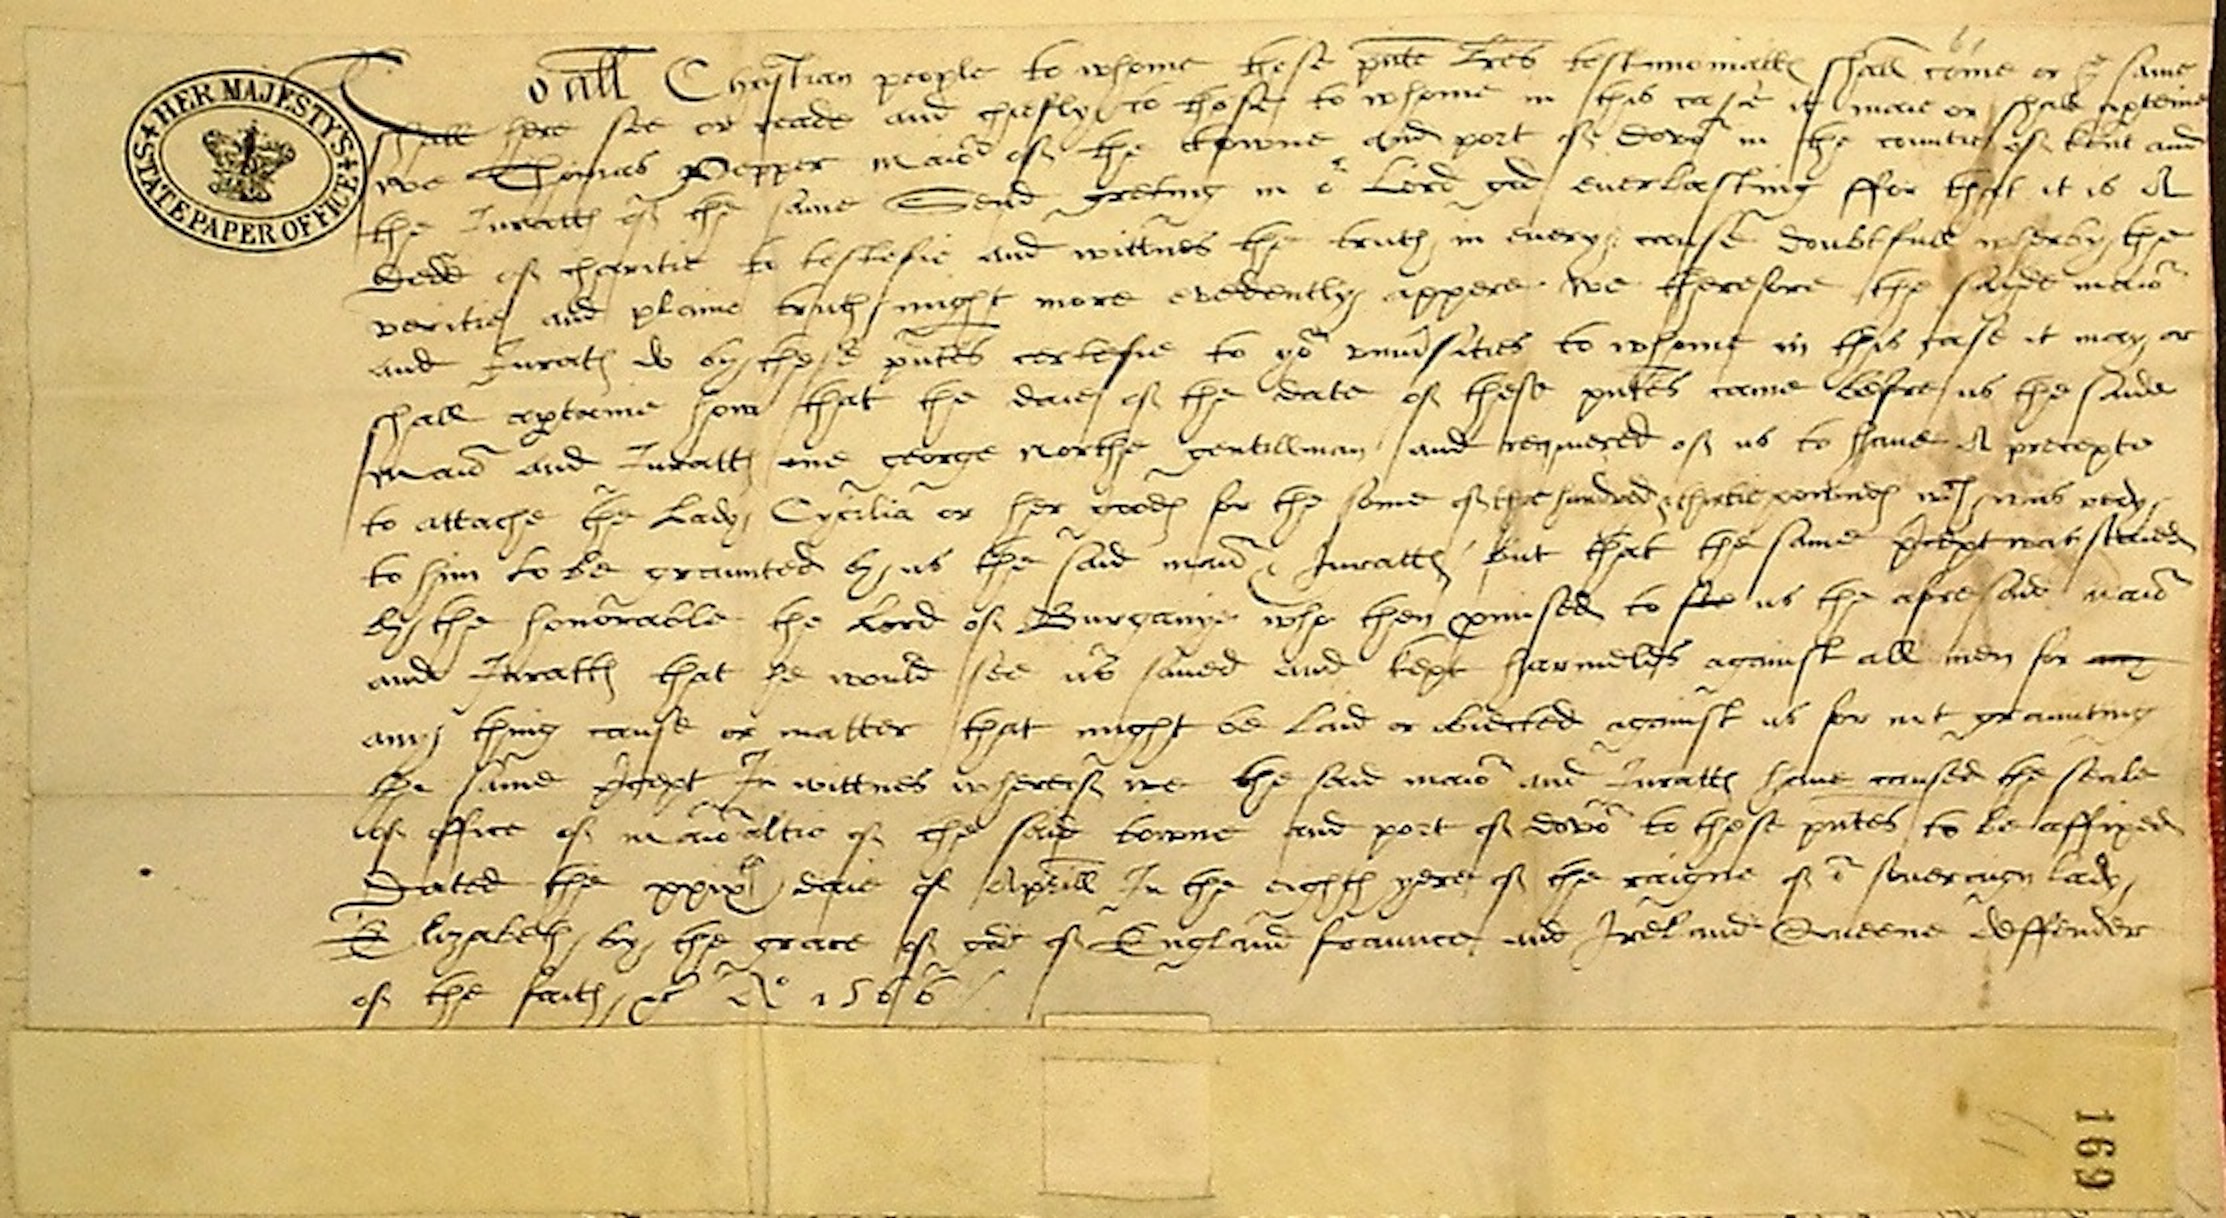 HER MAJESTY'S STATE PAPER OFFICE
To all Christian people to whome these pñte Lres testimoniall shall come or the same
shall here see or reade and chiefly to those to whome in this case it maie or shall apteine
we Thomas Pepper maior of the towne and port of Dovor in the countie of kent and
the Iuratts of the same Send greting in or Lord god everlasting ffor that it is A
dede of charitie to testefie and wittnes the truth in every cause doubtfull wherby the
veritie and plaine truth might more evedently appere We therefore the saide maior
and Iurats do by these pñtes certefie to yor univsities to whome in this case it may or
shall aptaine how that the daie of the date of these pñtes came before us the saide
Maior and Iuratts one george Northe gentillman and required of us to have A precepte
to attache the Lady Cycilia or her goods for the some of three hundred & thirtie poundes wch was redy
to him to be graunted by us the said maior & Iuratts but that the same pcept was staied
by the honorable the Lord of Burganye who then pmised to us the afore said maior
and Iuratts that he would see us saved and kept harmeles against all men for any
any thing cause or matter that might be laid or obiected against us for not graunting
the same pcept In wittnes wherof we the said maior and Iuratts have caused the seale
of office of maioraltie of the said towne and port of dovor to these pñtes to be affixed
Dated the xxixth daie of Aprill In the eighth yere of the raigne of or soveraign lady
Elizabeth by the grace of god of England fraunce and Ireland Queene deffender
of the faith &c Ao 1566
169